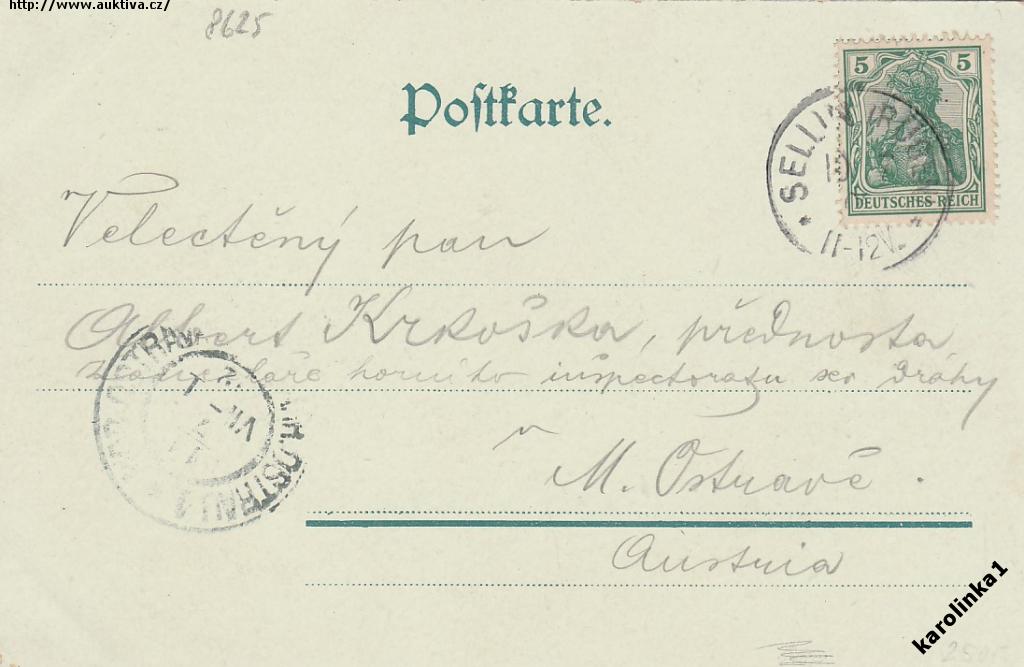 http://www.auktiva.cz/
8625
Postkarte.
5 5
DEUTSCHES REICH
* SELLIN (RÜGEN) *
11-12V.
Velectěný pan
Albert Krkoška, přednosta
kanceláře horního inspectorátu sev dráhy
v
M. Ostravě.
Austria
MÄHR. OSTRAU 1
karolinka1